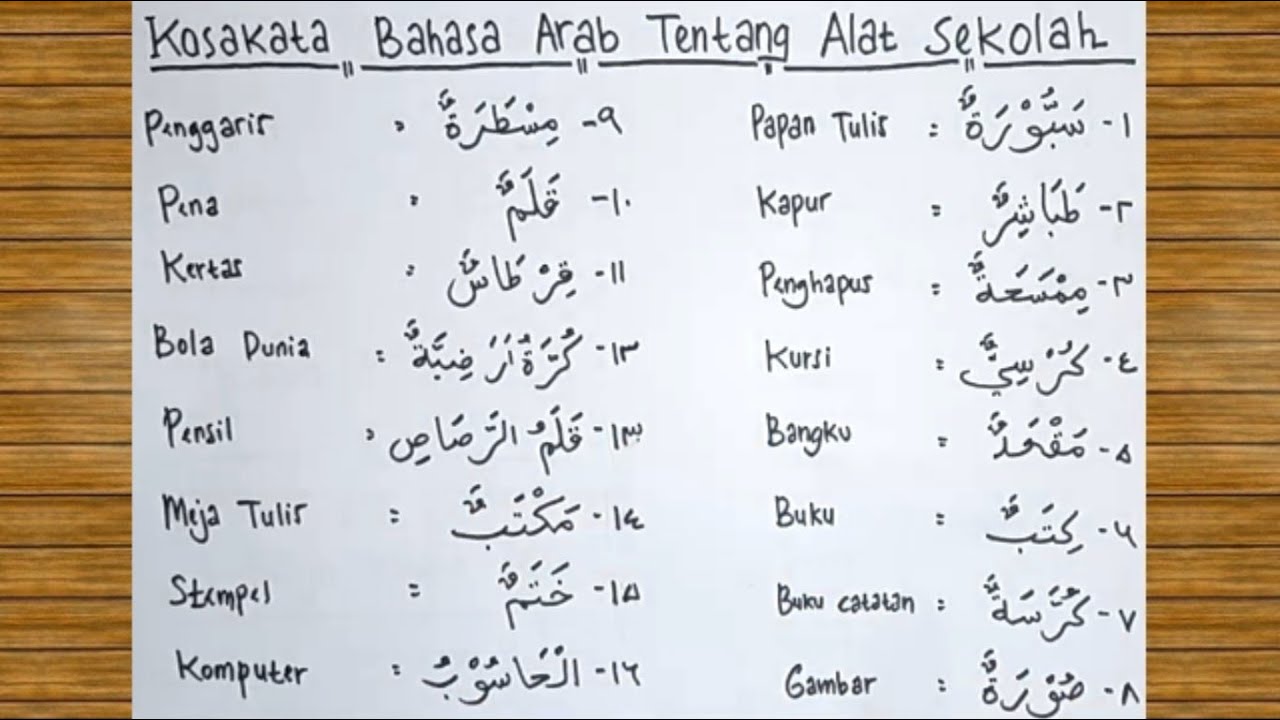 Kosakata Bahasa Arab Tentang Alat Sekolah
١- سَبُّوْرَةٌ : Papan Tulis
٢- طَبَاشِيْرٌ : Kapur
٣- مِمْسَحَةٌ : Penghapus
٤- كُرْسِيٌّ : Kursi
٥- مَقْعَدٌ : Bangku
٦- كِتَبٌ : Buku
٧- كُرَّسَةٌ : Buku catatan
٨- صُوْرَةٌ : Gambar
٩- مِسْطَرَةٌ : Penggaris
١٠- قَلَمٌ : Pena
١١- قِرْطَاسٌ : Kertas
١٢- كُرَةٌ اَرَضِيَّةٌ : Bola Dunia
١٣- قَلَمُ الرَّصَاصِ : Pensil
١٤- مَكْتَبٌ : Meja Tulis
١٥- خَتَمٌ : Stempel
١٦- الْحَاسُوْبُ : Komputer